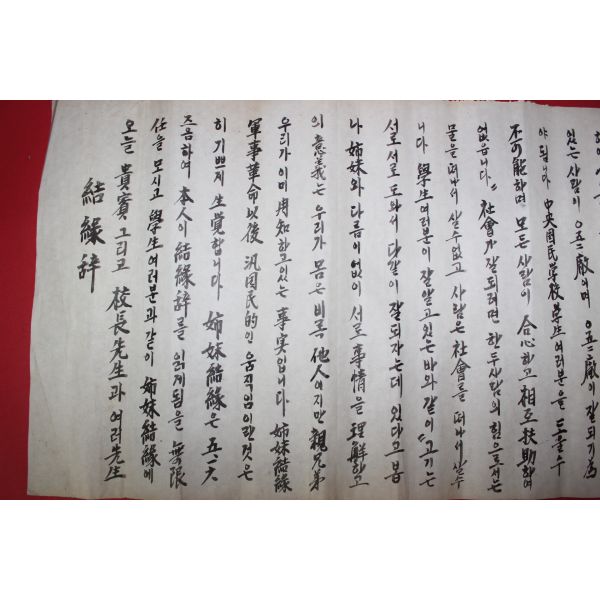 結緣辞
오늘 貴賓 그리고 校長先生과 여러先生
任을 모시고 學生여러분과같이 姉妹結緣에
즈음하여 本人이 結緣辞를 읽게됨을 無限
히 기쁘게 生覚합니다 姉妹結緣은 五·一六
軍事革命以後 汎國民的인 움직임이란것은
우리가 이미 周知하고있는 事実입니다 姉妹結緣
의 意義는 우리가 몸은 비록 他人이지만 親兄弟
나 姉妹와 다름이없이 서로 事情을 理解하고
서로서로 도와서 다같이 잘되자는데 있다고 봅
니다 學生여러분이 잘알고있는바와같이 "고기는
물을떠나서 살수없고 사람은 社會를 떠나서 살수
없읍니다" 社會가 잘되려면 한두사람의 힘으로서는
不可能하며 모든 사람이 合心하고 相互扶助하여
야 됩니다 中央國民學校學生여러분을 도울수
있는 사람이 0五二廠이며 0五二廠이 잘되기爲